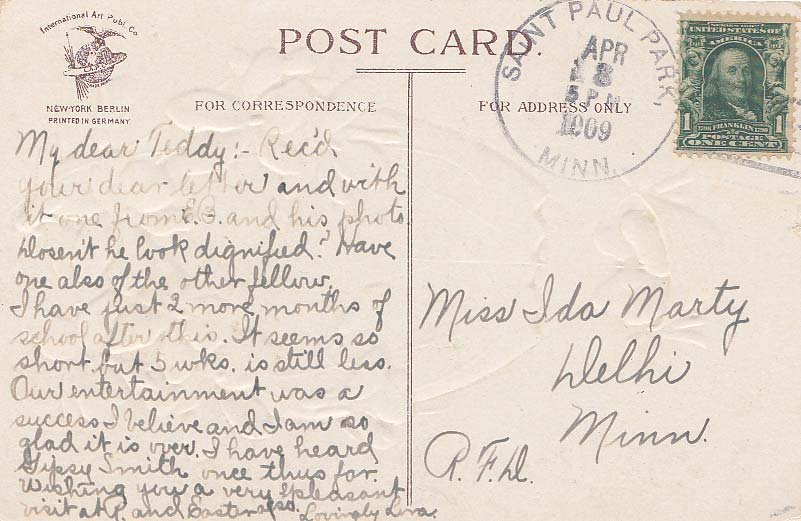 International Art Publ. Co.
NEW-YORK BERLIN
PRINTED IN GERMANY
POST CARD.
FOR CORRESPONDENCE
FOR ADDRESS ONLY
SAINT PAUL PARK,
APR
8
5 P M
1909
MINN.
SERIES 1902
UNITED STATES OF
AMERICA
1
FRANKLIN
1
POSTAGE
ONE CENT
My dear Teddy:- Rec'd
your dear letter and with
it one from E.C. and his photo.
Dosen't he look dignified? Have
one also of the other fellow.
I have just 2 more months of
school after this. It seems so
short but 5 wks. is still less.
Our entertainment was a
success I believe and I am so
glad it is over. I have heard
Gipsy Smith once thus far.
Wishing you a very pleasant
visit at P. and Easter also.
Lovingly
Miss Ida Marty
Delhi
Minn.
R.F.D.